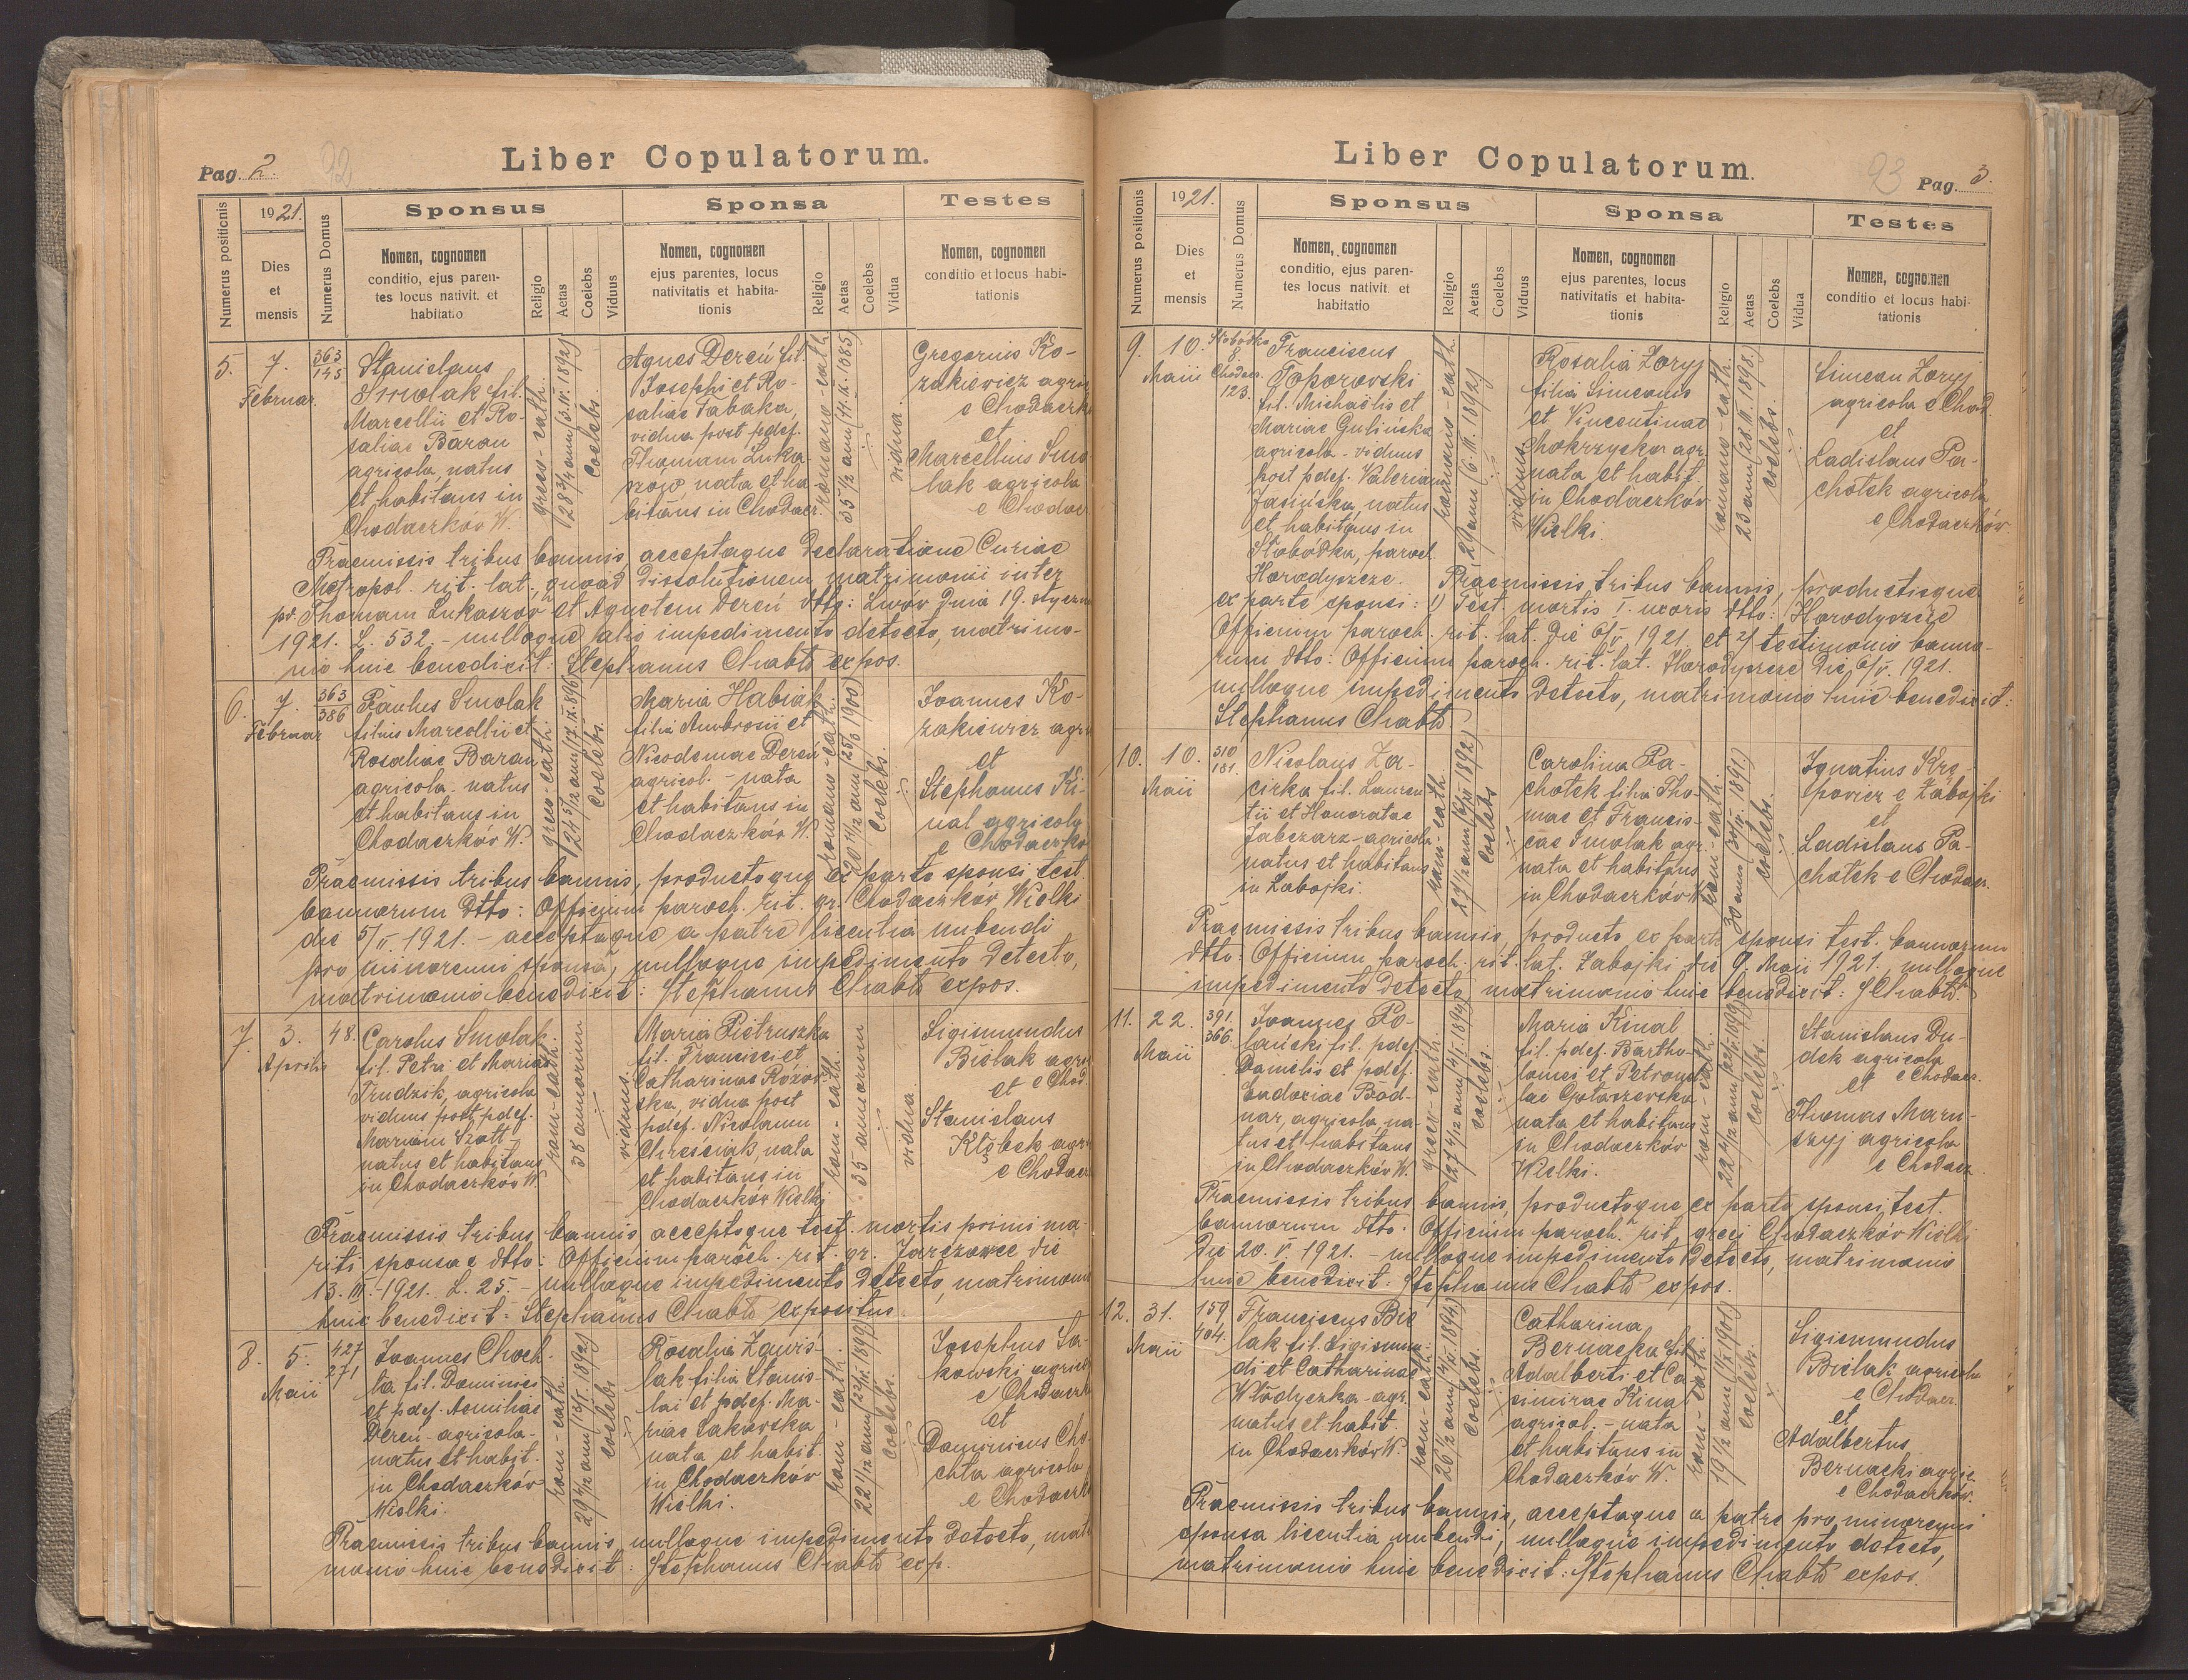 Liber Copulatorum.
Pag. 2.
92
Numerus positionis
1921.
Dies
et
mensis
Numerus Domus
Sponsus
Nomen, cognomen
conditio, ejus paren-
tes locus nativit. et
habitatio
Religio
Aetas
Coelebs
Viduus
Sponsa
Nomen, cognomen
ejus parentes, locus
nativitatis et habita-
tionis
Religio
Aetas
Coelebs
Vidua
Testes
Nomen, cognomen
conditio et locus habi-
tationis
5.
7.
Februar.
363
145
Stanislaus
Smolak fil.
Marcellii et Ro-
saliae Baran
agricola natus
et habitans in
Chodaczków W.
greco-cath.
28 3/4 ann (3. IV. 1892)
coelebs
Agnes Dereń fil.
Josephi et Ro-
saliae Tabaka,
vidua post pdef.
Thomam Luka-
szów nata et ha
bitans in Chodacz.
romano-cath.
35 1/2 ann
vidua
Gregorius Ko-
zakiewicz agric
e Chodaczk
et
Marcellius Smo
lak agricola
e Chodac
Praemissis tribus bannis, acceptaque declaratione Curiae
Metropol. rit. lat., quoad dissolutionem matrimonii inter
pd. Thomam Lukaszów et Agnetem Dereń dtto: Lwów dnia 19. styczn
1921. L. 532. - nulloque alio impedimento detecto, matrimo-
nio huic benedixit: Stephanus Chabło expos.
6.
7.
Februar
363
386
Paulus Smolak
filius Marcellii et
Rosaliae Baran
agricola - natus
et habitans in
Chodaczków W.
greco-cath.
24 5/12 ann
coelebs.
Maria Habiak
filia Ambrosii et
Nicodemae Dereń
agricol. - nata
et habitans in
Chodaczków W.
romano-cath.
coelebs
Joannes Ko-
zakiewicz agr
et
Stephanus Ki-
nal agricola
e Chodaczkó
Praemissis tribus bannis, productoque ex parte sponsi test.
bannorum dtto: Officium paroch. rit. gr. Chodaczków Wielki
die 5/II. 1921. - acceptaque a patre licentia nubendi
pro minorenni sponsa, nulloque impedimento detecto,
matrimonio benedixit: Stephanus Chabło expos.
7.
3.
Aprilis
48.
Carolus Smolak
fil. Petri et Mariae
Trudzik, agricola
viduus post pdef.
Mariam Szott -
natus et habitans
in Chodaczków W.
rom-cath.
38 annorum
viduus.
Maria Pietruszka
fil. Francisci et
Catharinae Rózań-
ska, vidua post
pdef. Nicolaum
Chreściak, nata
et habitans in
Chodaczków Wielki
rom-cath.
35 annorum
vidua
Sigismundus
Bielak agric
e Chod.
et
Stanislaus
Kłębek agr
e Chodacz
Praemissis tribus bannis acceptoque test. mortis primi ma-
riti sponsae dtto: Officium paroch. rit. gr. Jarczowce die
13. III. 1921. L. 25. - nulloque impedimento detecto, matrimonio
huic benedixit: Stephanus Chabło expositus.
8.
5.
Maii
427
271
Joannes Choch-
ta fil. Dominici
et pdef. Aemiliae
Dereń - agricola -
natus et habit.
in Chodaczków
Wielki.
rom-cath.
29 4/12 ann
coelebs
Rosalia Zawis-
lak filia Stanis-
lai et pdef. Ma-
riae Sakowska
nata et habit
in Chodaczków
Wielki.
rom-cath
22 1/12 ann
coelebs.
Josephus Sa-
kowski agric
e Chodaczk
et
Dominicus Cho-
chta agricola
e Chodaczk
Praemissis tribus bannis, nulloque impedimento detecto, matri
monio huic benedixit: Stephanus Chabło exp.
Liber Copulatorum.
93
Pag. 3.
Numerus positionis
1921.
Dies
et
mensis
Numerus Domus
Sponsus
Nomen, cognomen
conditio, ejus paren-
tes locus nativit. et
habitatio
Religio
Aetas
Coelebs
Viduus
Sponsa
Nomen, cognomen
ejus parentes, locus
nativitatis et habita-
tionis
Religio
Aetas
Coelebs
Vidua
Testes
Nomen, cognomen
conditio et locus habi-
tationis
9.
10.
Maii
Słobódka
8.
Chodacz.
123.
Franciscus
Toporowski
fil. Michaëlis et
Mariae Gulińska
agricola - viduus
post pdef. Valeriam
Jasińska, natus
et habitans in
Słobódka, paroch.
Horodyszcze.
romano-cath.
29 ann (6. III. 1892)
viduus.
Rosalia Zoryj
filia Simeonis
et Vincentinae
Mokrzycka agr
nata et habit.
in Chodaczków
Wielki.
romano-cath.
23 ann
coelebs.
Simeon Zoryj
agricola e Chod.
et
Ladislaus Pa-
chotek agricola
e Chodaczków
Praemissis tribus bannis, productisque
ex parte sponsi: 1) Test. mortis I. uxoris dtto: Horodyszcze
Officium paroch. rit. lat. die 6/V. 1921. et 2/ testimonio banno-
rum dtto: Officium paroch. rit. lat. Horodyszcze die 6/V. 1921.
nulloque impedimento detecto, matrimonio huic benedixit:
Stephanus Chabło
10.
10.
Maii
310
181.
Nicolaus Za-
cirka fil. Lauren-
tii et Honoratae
Jabczarz - agricola
natus et habitans
in Zabojki.
rom-cath
coelebs
Carolina Pa-
chotek filia Tho-
mae et Francis-
cae Smolak agr.
nata et habitans
in Chodaczków W.
rom-cath.
30 ann
coelebs.
Ignatius Kro-
powicz e Zabojki
et
Ladislaus Pa-
chotek e Chodacz.
Praemissis tribus bannis, producto ex parte sponsi test. bannorum
dtto: Officium paroch. rit. lat. Zabojki die 9. Maii 1921. nulloque
impedimento detecto, matrimonio huic benedixit: S Chabło
11.
22.
Maii
391.
366.
Joannes Po-
lański fil. pdef.
Danielis et pdef.
Eudoxiae Bod-
nar, agricola, na-
tus et habitans
in Chodaczków W.
greco-cath.
27 4/12 ann
coelebs
Maria Kinal
fil. pdef. Bartho-
lomei et Petronel-
lae Gołaszewska
nata et habitans
in Chodaczków
Wielki.
rom-cath
coelebs.
Stanislaus Du-
dek agricola
e Chodacz.
et
Thomas Maru-
szyj agricola
e Chodacz
Praemissis tribus bannis, productoque ex parte sponsi, test.
bannorum dtto: Officium paroch. rit. graeci Chodaczków Wielki
die 20. V. 1921. - nulloque impedimento detecto, matrimonio
huic benedixit: Stephanus Chabło expos.
12.
31.
Maii
159
404.
Franciscus Bie
lak fil. Sigismun-
di et Catharinae
Włodyczka - agr.
natus et habit.
in Chodaczków W.
rom-cath
coelebs.
Catharina
Bernacka fil.
Adalberti et Ca-
simirae Kinal
agricol. - nata
et habitans in
Chodaczków W.
rom-cath
19 1/2 ann
coelebs.
Sigismundus
Bielak agricola
e Chodacz.
et
Adalbertus
Bernacki agric.
e Chodaczków.
Praemissis tribus bannis, acceptaque a patre pro minorenni
sponsa licentia nubendi, nulloque impedimento detecto,
matrimonio huic benedixit: Stephanus Chabło expos.